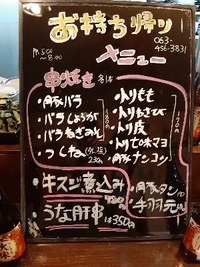 お持ち帰り
メニュー
PM 5:00
~8:00
053-
456-3831
串焼き 各1本
・豚バラ
・バラしょうが
・バラねぎみそ
・つくね
230円
・トリもも
・トリわさび
・トリ皮
・トリ七味マヨ
・豚ナンコツ
牛スジ煮込み
うな肝串
¥350円
・豚タン
・手羽元